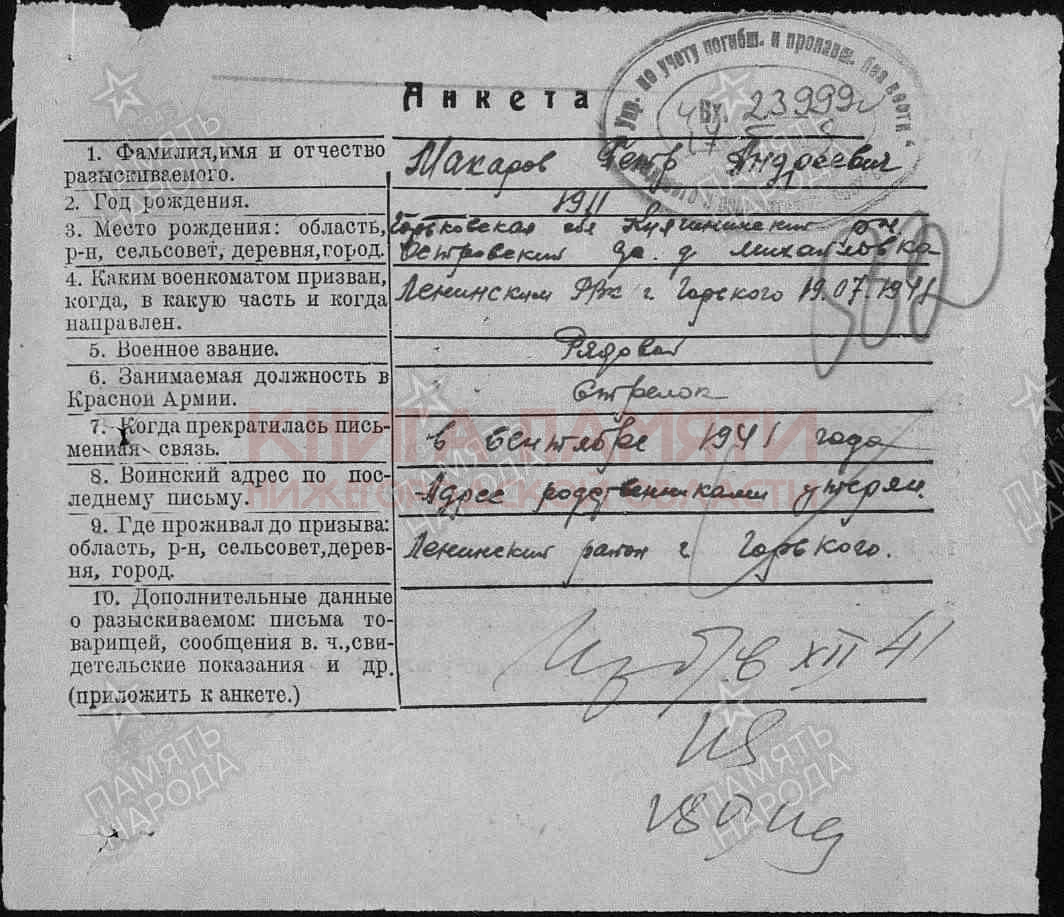 Упр. по учету погибш. и пропавш. без вести
Вх. 23999
Анкета
1. Фамилия,имя и отчество
разыскиваемого.
Макаров Петр Андреевич
2. Год рождения.
1911
3. Место рождения: область,
р-н, сельсовет, деревня,город.
Горьковская обл Княгининский р-н.
Островский д. Михайловка
4. Каким военкоматом призван,
когда, в какую часть и когда
направлен.
Ленинским РВК г. Горького 19.07.1941
5. Военное звание.
Рядовой
6. Занимаемая должность в
Красной Армии.
Стрелок
7. Когда прекратилась пись-
менная связь.
в Сентябре 1941 года
8. Воинский адрес по пос-
леднему письму.
Адрес родственниками утерян.
9. Где проживал до призыва:
область, р-н, сельсовет,дерев-
ня, город.
Ленинский район г. Горького.
10. Дополнительные данные
о разыскиваемом: письма то-
варищей, сообщения в. ч.,сви-
детельские показания и др.
(приложить к анкете.)
XII 41
КНИГА ПАМЯТИ
НИЖЕГОРОДСКОЙ ОБЛАСТИ
ПАМЯТЬ
НАРОДА
ПАМЯТЬ
НАРОДА
ПАМЯТЬ
НАРОДА